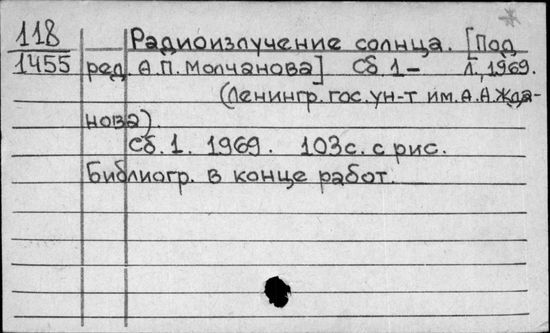 118 Радиоизлучение солнца. [Под
1455 ред. А.П. Молчанова] Сб 1- Л., 1969.
(Ленингр. гос. ун-т им. А.А. Жда-
нова).
Сб. 1. 1969. 103 с. с рис.
Библиогр. в конце работ.